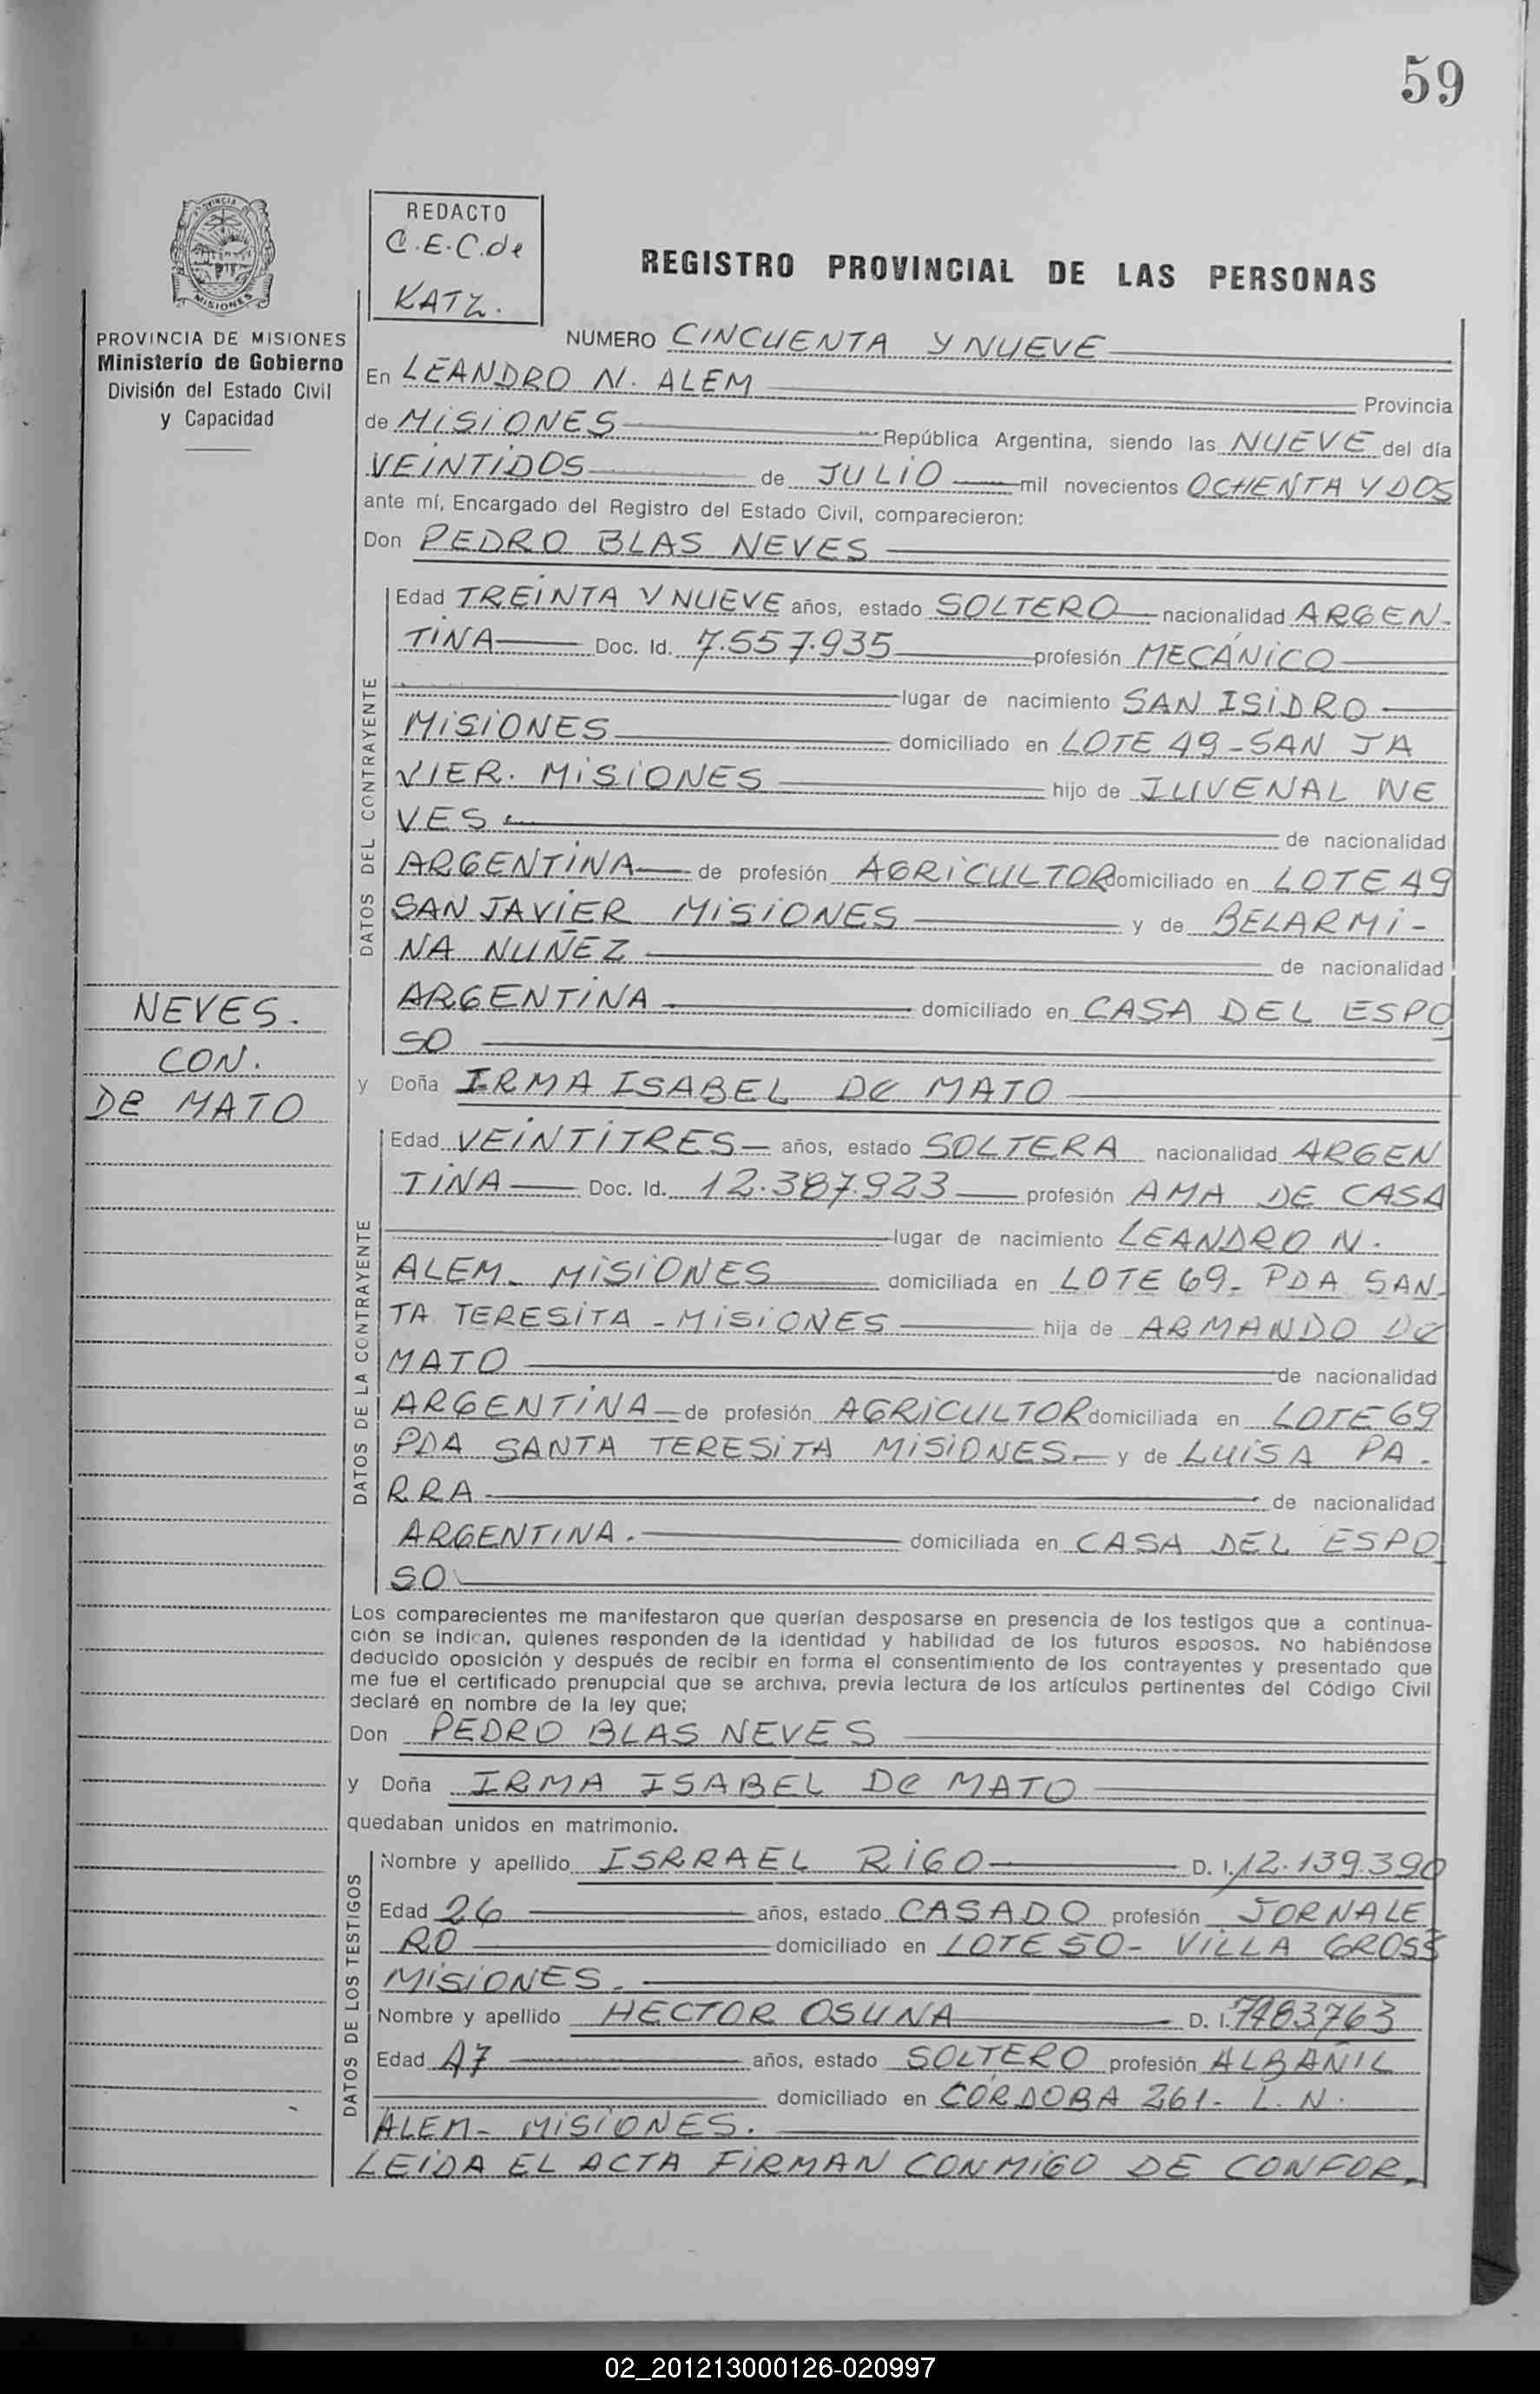 59
PROVINCIA
MISIONES
REDACTO
C.E.C.de
KATZ.
REGISTRO PROVINCIAL DE LAS PERSONAS
PROVINCIA DE MISIONES
Ministerio de Gobierno
División del Estado Civil
y Capacidad
NUMERO CINCUENTA Y NUEVE
En LEANDRO N. ALEM Provincia
de MISIONES República Argentina, siendo las NUEVE del día
VEINTIDOS de JULIO mil novecientos OCHENTA Y DOS
ante mí, Encargado del Registro del Estado Civil, comparecieron:
Don PEDRO BLAS NEVES
DATOS DEL CONTRAYENTE
Edad TREINTA Y NUEVE años, estado SOLTERO nacionalidad ARGEN-
TINA Doc. Id. 7.557.935 profesión MECÁNICO
lugar de nacimiento SAN ISIDRO
MISIONES domiciliado en LOTE 49-SAN JA
VIER. MISIONES hijo de JUVENAL NE
VES de nacionalidad
ARGENTINA de profesión AGRICULTOR domiciliado en LOTE 49
SAN JAVIER MISIONES y de BELARMI-
NA NUÑEZ de nacionalidad
ARGENTINA domiciliado en CASA DEL ESPO
SO
NEVES.
CON.
De MATO
y Doña IRMA ISABEL De MATO
DATOS DE LA CONTRAYENTE
Edad VEINTITRES años, estado SOLTERA nacionalidad ARGEN
TINA Doc. Id. 12.387.923 profesión AMA DE CASA
lugar de nacimiento LEANDRO N.
ALEM- MISIONES domiciliada en LOTE 69- PDA SAN-
TA TERESITA - MISIONES hija de ARMANDO De
MATO de nacionalidad
ARGENTINA de profesión AGRICULTOR domiciliada en LOTE 69
PDA SANTA TERESITA MISIONES y de LUISA PA-
RRA de nacionalidad
ARGENTINA. domiciliada en CASA DEL ESPO
SO
Los comparecientes me manifestaron que querían desposarse en presencia de los testigos que a continua-
ción se indican, quienes responden de la identidad y habilidad de los futuros esposos. No habiéndose
deducido oposición y después de recibir en forma el consentimiento de los contrayentes y presentado que
me fue el certificado prenupcial que se archiva, previa lectura de los artículos pertinentes del Código Civil
declaré en nombre de la ley que;
Don PEDRO BLAS NEVES
y Doña IRMA ISABEL De MATO
quedaban unidos en matrimonio.
DATOS DE LOS TESTIGOS
Nombre y apellido ISRRAEL RIGO D. I. 12.139.390
Edad 26 años, estado CASADO profesión JORNALE
RO domiciliado en LOTE 50- VILLA GROSS
MISIONES.
Nombre y apellido HECTOR OSUNA D. I. 7483763
Edad 47 años, estado SOLTERO profesión ALBAÑIL
domiciliado en CÓRDOBA 261- L. N.
ALEM- MISIONES.
LEIDA EL ACTA FIRMAN CONMIGO DE CONFOR-
02_201213000126-020997